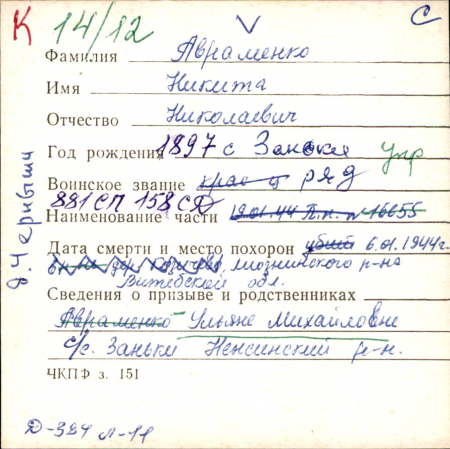 К 14/12 С
Фамилия Авраменко
Имя Никита
Отчество Николаевич
Год рождения 1897 с Заньки Укр
Воинское звание крас-ц ряд
881 СП 158 СД
Наименование части 19.01.44 п.п. № 16655
Дата смерти и место похорон убит 6.01.1944г.
д. Черныши
Лиознинского р-на
Витебской обл.
Сведения о призыве и родственниках
Авраменко Ульяне Михайловне
с/с. Заньки Ненсинский р-н.
ЧКПФ з. 151
Д-384 л-11